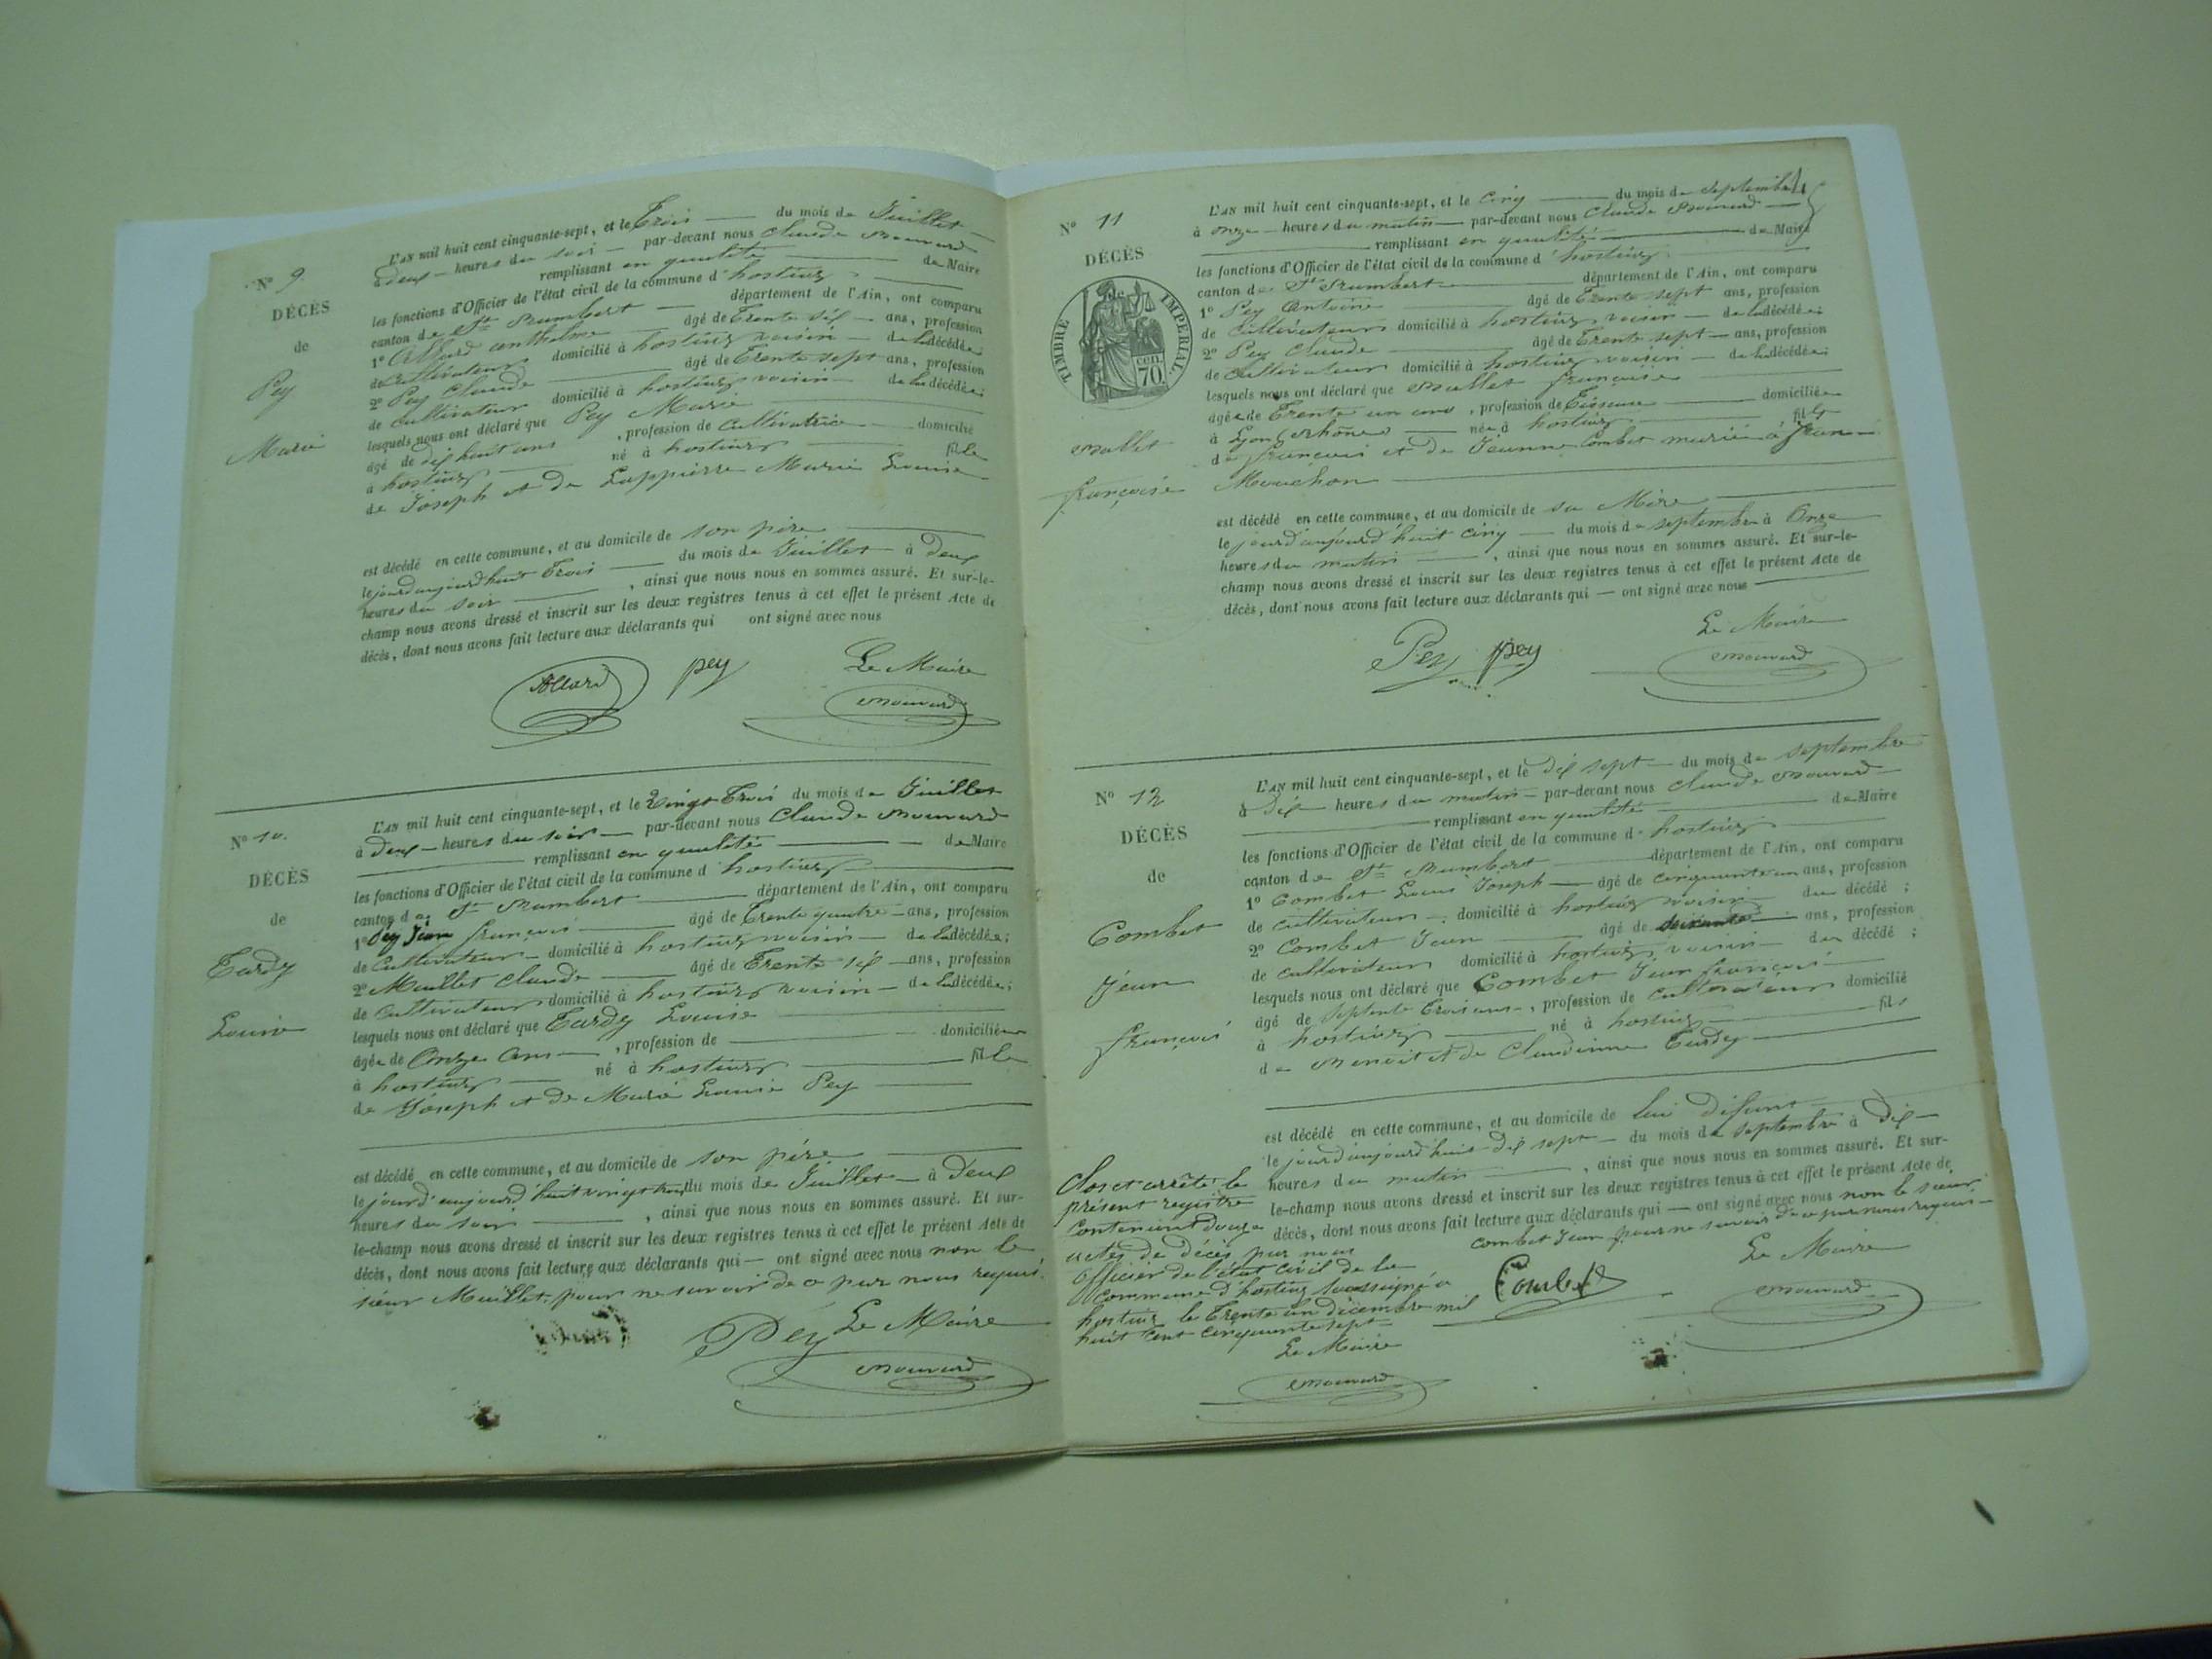 N° 9.
DÉCÈS
de
Pey
Marie
L'AN mil huit cent cinquante-sept, et le Trois du mois de Juillet
à deux heures du soir par-devant nous Claude
remplissant en qualité de Maire
les fonctions d'Officier de l'état civil de la commune d'hostiaz
canton de St Rambert département de l'Ain, ont comparu
1° Allard anthelme âgé de Trente six ans, profession
de Cultivateur domicilié à hostiaz voisin de la décédée;
2° Pey Claude âgé de Trente sept ans, profession
de Cultivateur domicilié à hostiaz voisin de la décédée;
lesquels nous ont déclaré que Pey Marie
âgé de dix huit ans, profession de Cultivatrice domicilié
à hostiaz né à hostiaz fille
de Joseph et de Lappierre Marie Louise
est décédé en cette commune, et au domicile de son père
le jourd'aujourd'huit Trois du mois de Juillet à deux
heures du soir, ainsi que nous nous en sommes assuré. Et sur-le-
champ nous avons dressé et inscrit sur les deux registres tenus à cet effet le présent Acte de
décès, dont nous avons fait lecture aux déclarants qui ont signé avec nous
Allard pey Le Maire
N° 10.
DÉCÈS
de
Tardy
Louise
L'AN mil huit cent cinquante-sept, et le Vingt Trois du mois de Juillet
à deux heures du soir par-devant nous Claude
remplissant en qualité de Maire
les fonctions d'Officier de l'état civil de la commune d'hostiaz
canton de St Rambert département de l'Ain, ont comparu
1° Pey Jean françois âgé de Trente quatre ans, profession
de Cultivateur domicilié à hostiaz voisin de la décédée;
2° Maillet Claude âgé de Trente six ans, profession
de Cultivateur domicilié à hostiaz voisin de la décédée;
lesquels nous ont déclaré que Tardy Louise
âgée de Onze ans, profession de domiciliée
à hostiaz né à hostiaz fille
de Joseph et de Marie Louise Pey
est décédé en cette commune, et au domicile de son père
le jourd'aujourd'huit vingt trois du mois de Juillet à deux
heures du soir, ainsi que nous nous en sommes assuré. Et sur-
le-champ nous avons dressé et inscrit sur les deux registres tenus à cet effet le présent Acte de
décès, dont nous avons fait lecture aux déclarants qui ont signé avec nous non le
sieur Maillet pour ne savoir de ce par nous requis.
Pey Le Maire
N° 11
DÉCÈS
de
TIMBRE IMPERIAL
70 cen.
françoise
L'AN mil huit cent cinquante-sept, et le cinq du mois de septembre
à onze heures du matin par-devant nous Claude
remplissant en qualité de Maire
les fonctions d'Officier de l'état civil de la commune d'hostiaz
canton de St Rambert département de l'Ain, ont comparu
1° Pey Antoine âgé de Trente sept ans, profession
de Cultivateur domicilié à hostiaz voisin de la décédée;
2° Pey Claude âgé de Trente sept ans, profession
de Cultivateur domicilié à hostiaz voisin de la décédée;
lesquels nous ont déclaré que françoise
âgée de Trente un ans, profession de Tisseuse domiciliée
à Lyon Rhône née à hostiaz fille
de françois et de Jeanne Combet mariée à
Mouchon
est décédé en cette commune, et au domicile de sa Mère
le jourd'aujourd'huit cinq du mois de septembre à Onze
heures du matin, ainsi que nous nous en sommes assuré. Et sur-le-
champ nous avons dressé et inscrit sur les deux registres tenus à cet effet le présent Acte de
décès, dont nous avons fait lecture aux déclarants qui ont signé avec nous
Pey pey Le Maire
N° 12
DÉCÈS
de
Combet
Jean
françois
L'AN mil huit cent cinquante-sept, et le dix sept du mois de septembre
à dix heures du matin par-devant nous Claude
remplissant en qualité de Maire
les fonctions d'Officier de l'état civil de la commune d'hostiaz
canton de St Rambert département de l'Ain, ont comparu
1° Combet Louis Joseph âgé de cinquante un ans, profession
de cultivateur domicilié à hostiaz voisin du décédé;
2° Combet Jean âgé de soixante ans, profession
de cultivateur domicilié à hostiaz voisin du décédé;
lesquels nous ont déclaré que Combet Jean françois
âgé de septente Trois ans, profession de cultivateur domicilié
à hostiaz né à hostiaz fils
de Benoit et de Claudine Tardy
est décédé en cette commune, et au domicile de lui défunt
le jourd'aujourd'huis dix sept du mois de septembre à dix
heures du matin, ainsi que nous nous en sommes assuré. Et sur-
le-champ nous avons dressé et inscrit sur les deux registres tenus à cet effet le présent Acte de
décès, dont nous avons fait lecture aux déclarants qui ont signé avec nous non le sieur
Combet Jean pour ne savoir de ce par nous requis
Combet Le Maire
Clos et arrêté le
présent registre
Contenant douze
actes de décès par nous
Officier de l'état civil de la
Commune d'hostiaz soussigné a
hostiaz le Trente un décembre mil
huit cent cinquante sept
Le Maire